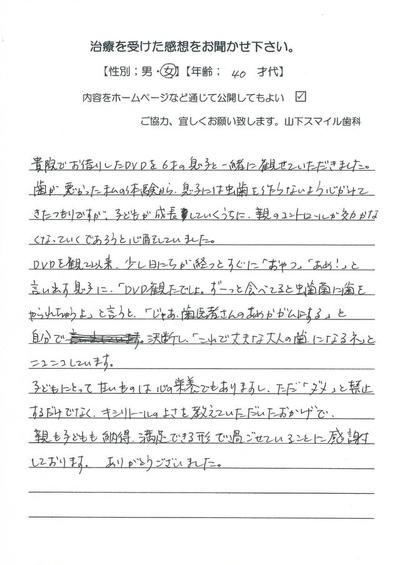 治療を受けた感想をお聞かせ下さい。
【性別；男・女】【年齢； 40 才代】
内容をホームページなど通じて公開してもよい ☑
ご協力、宜しくお願い致します。山下スマイル歯科
貴院でお借りしたDVDを6才の息子と一緒に観せていただきました。
歯が悪かった私の体験から、息子には虫歯を作らないよう心がけて
きたつもりですが、子どもが成長していくうちに、親のコントロールが効かなく
なっていくであろうと心配していました。
DVDを観て以来、少し日にちが経つとすぐに「おやつ」「あめ！」と
言い出す息子に、「DVD観たでしょ。ずーっと食べてると虫歯菌に歯を
やられちゃうよ」と言うと、「じゃあ、歯医者さんのあめかガムにする」と
自分で 決断し、「これで大きな大人の歯になるネ」と
ニコニコしています。
子どもにとって甘いものは心の栄養でもありますし、ただ「ダメ」と禁止
するだけでなく、キシリトールのよさを教えていただいたおかげで、
親も子どもも納得、満足できる形で過ごせていることに感謝
しております。 ありがとうございました。